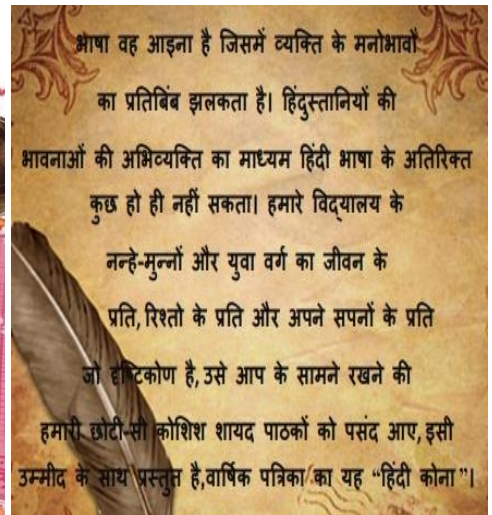 भाषा वह आइना है जिसमें व्यक्ति के मनोभावों
का प्रतिबिंब झलकता है। हिंदुस्तानियों की
भावनाओं की अभिव्यक्ति का माध्यम हिंदी भाषा के अतिरिक्त
कुछ हो ही नहीं सकता। हमारे विद्यालय के
नन्हे-मुन्नों और युवा वर्ग का जीवन के
प्रति, रिश्तो के प्रति और अपने सपनों के प्रति
जो दृष्टिकोण है, उसे आप के सामने रखने की
हमारी छोटी-सी कोशिश शायद पाठकों को पसंद आए, इसी
उम्मीद के साथ प्रस्तुत है,वार्षिक पत्रिका का यह “हिंदी कोना”।